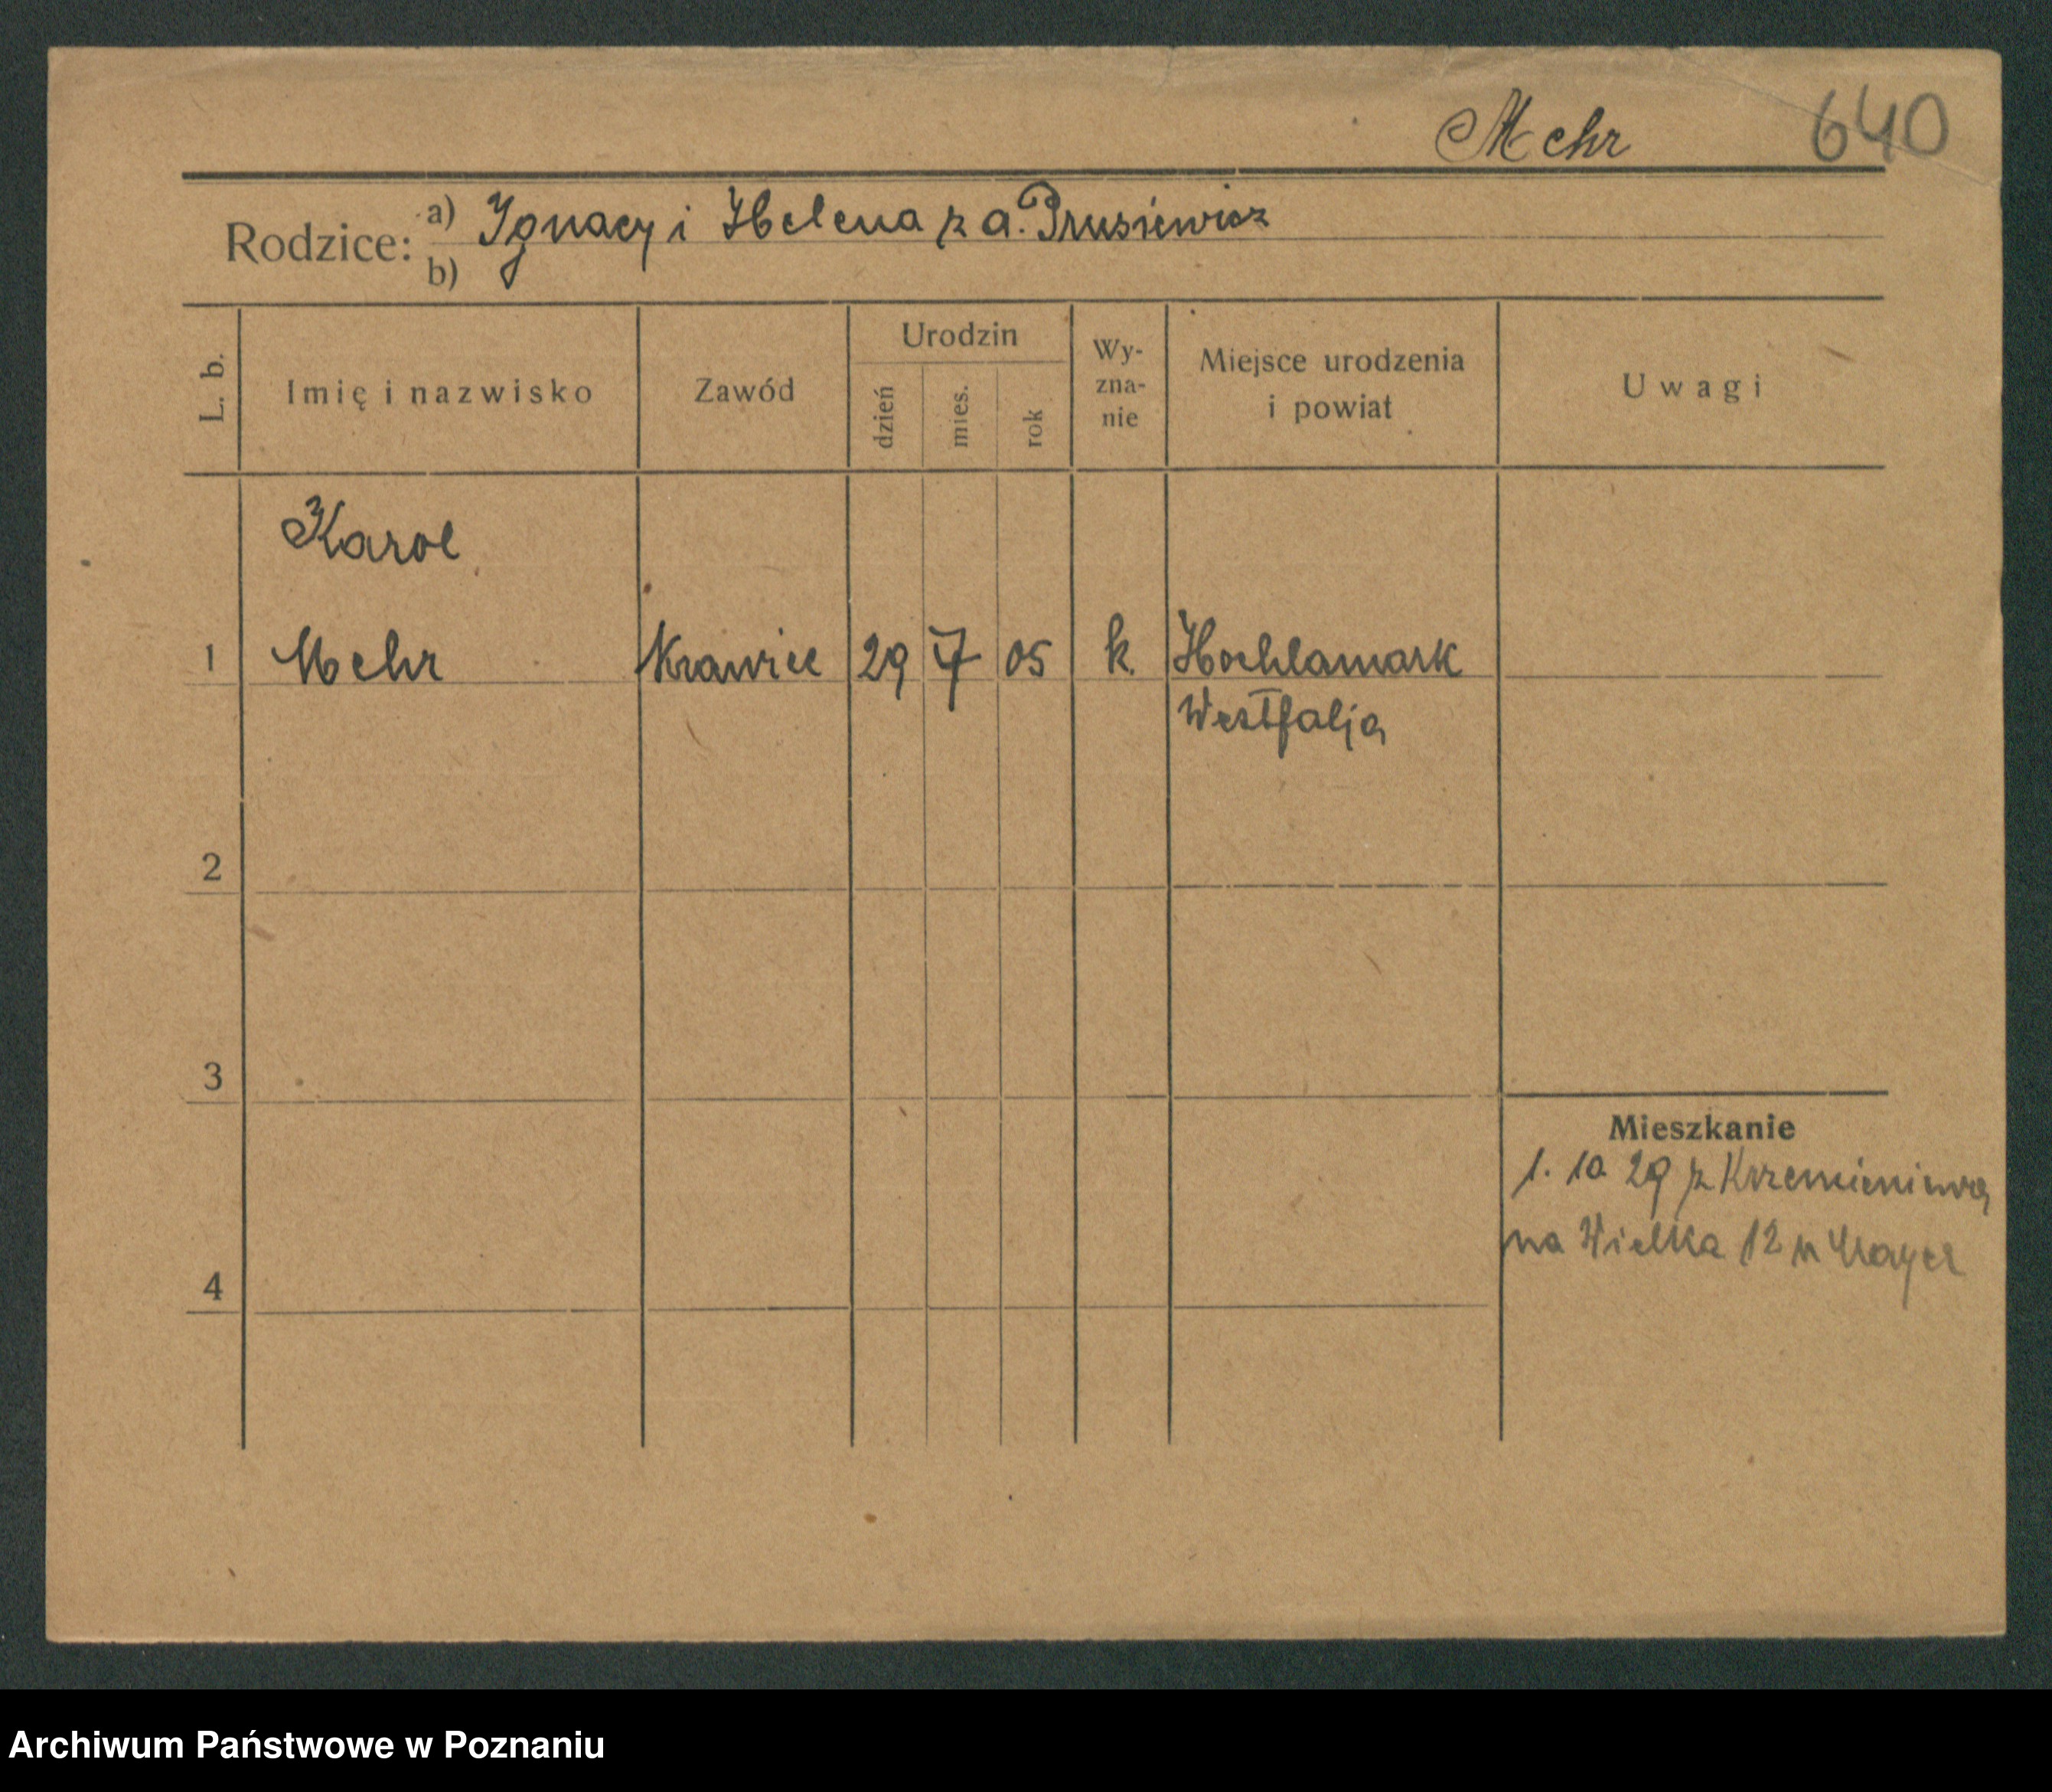 Mehr 640
Rodzice: a) Ignacy i Helena z d. Prusiewicz
b)
L. b.
Imię i nazwisko
Zawód
Urodzin
dzień
mies.
rok
Wy-
zna-
nie
Miejsce urodzenia
i powiat
Uwagi
Karol
1 Mehr Krawiec 29 7 05 k. Hochlamark
Westfalja
2
3
Mieszkanie
1. 10 29 z Krzemieniewa
na Wielka 12 u
4
Archiwum Państwowe w Poznaniu